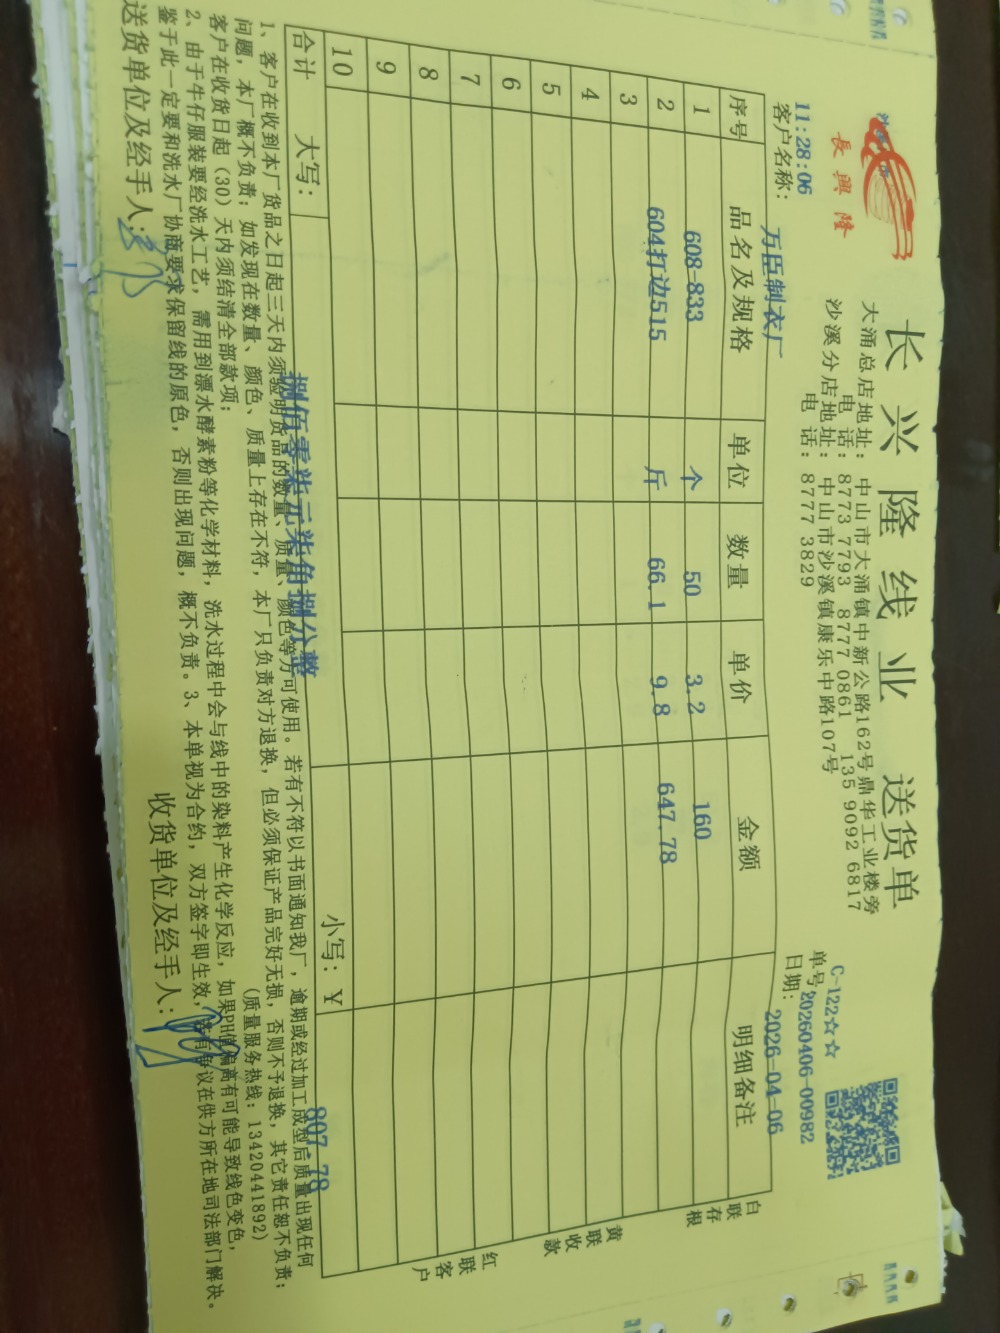 長興隆
长兴隆线业 送货单
大涌总店地址：中山市大涌镇中新公路162号鼎华工业楼旁
电 话：8773 7793 8777 0861 135 9092 6817
沙溪分店地址：中山市沙溪镇康乐中路107号
电 话：8777 3829
C-122☆☆
单号：20260406-00982
日期：2026-04-06
11:28:06
客户名称：万臣制衣厂
序号 品名及规格 单位 数量 单价 金额 明细备注
1 608-833 个 50 3.2 160
2 604打边515 斤 66.1 9.8 647.78
3
4
5
6
7
8
9
10
合计 大写：捌佰零柒元柒角捌分整 小写：￥ 807.78
白联存根
黄联收款
红联客户
1、客户在收到本厂货品之日起三天内须验明货品的数量、质量、颜色等方可使用。若有不符以书面通知我厂，逾期或经过加工成型后质量出现任何
问题，本厂概不负责；如发现在数量、颜色、质量上存在不符，本厂只负责对方退换，但必须保证产品完好无损，否则不予退换，其它责任恕不负责；
客户在收货日起（30）天内须结清全部款项； （质量服务热线：13420441892）
2、由于牛仔服装要经洗水工艺，需用到漂水酵素粉等化学材料，洗水过程中会与线中的染料产生化学反应，如果PH值偏高有可能导致线色变色，
鉴于此一定要和洗水厂协商要求保留线的原色，否则出现问题，概不负责。3、本单视为合约，双方签字即生效，若有争议在供方所在地司法部门解决。
送货单位及经手人： 收货单位及经手人：